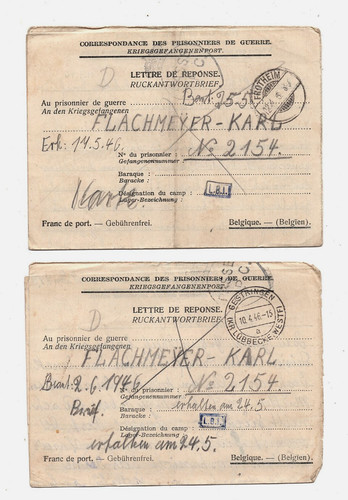 CORRESPONDANCE DES PRISONNIERS DE GUERRE.
KRIEGSGEFANGENENPOST.
D
LETTRE DE REPONSE.
RUCKANTWORTBRIEF
Au prisonnier de guerre
An den Kriegsgefangenen
FLACHMEYER-KARL
Erh: 14.5.46.
N° du prisonnier :
Gefangenennummer
No 2154.
Baraque :
Baracke :
Karte
Désignation du camp :
Lager-Bezeichnung :
L.B.I.
Franc de port. — Gebührenfrei.
Belgique. — (Belgien).
CORRESPONDANCE DES PRISONNIERS DE GUERRE.
KRIEGSGEFANGENENPOST.
D
LETTRE DE REPONSE.
RUCKANTWORTBRIEF
GESTRINGEN
10.4.46-15
(KR. LÜBBECKE WESTF.)
a
Au prisonnier de guerre
An den Kriegsgefangenen
FLACHMEYER-KARL
Beant. 2.6.1946
N° du prisonnier :
Gefangenennummer
No 2154
Brief.
Baraque :
Baracke :
erhalten am 24.5.
Désignation du camp :
Lager-Bezeichnung :
L.B.I.
erhalten am 24.5.
Franc de port. — Gebührenfrei.
Belgique. — (Belgien).